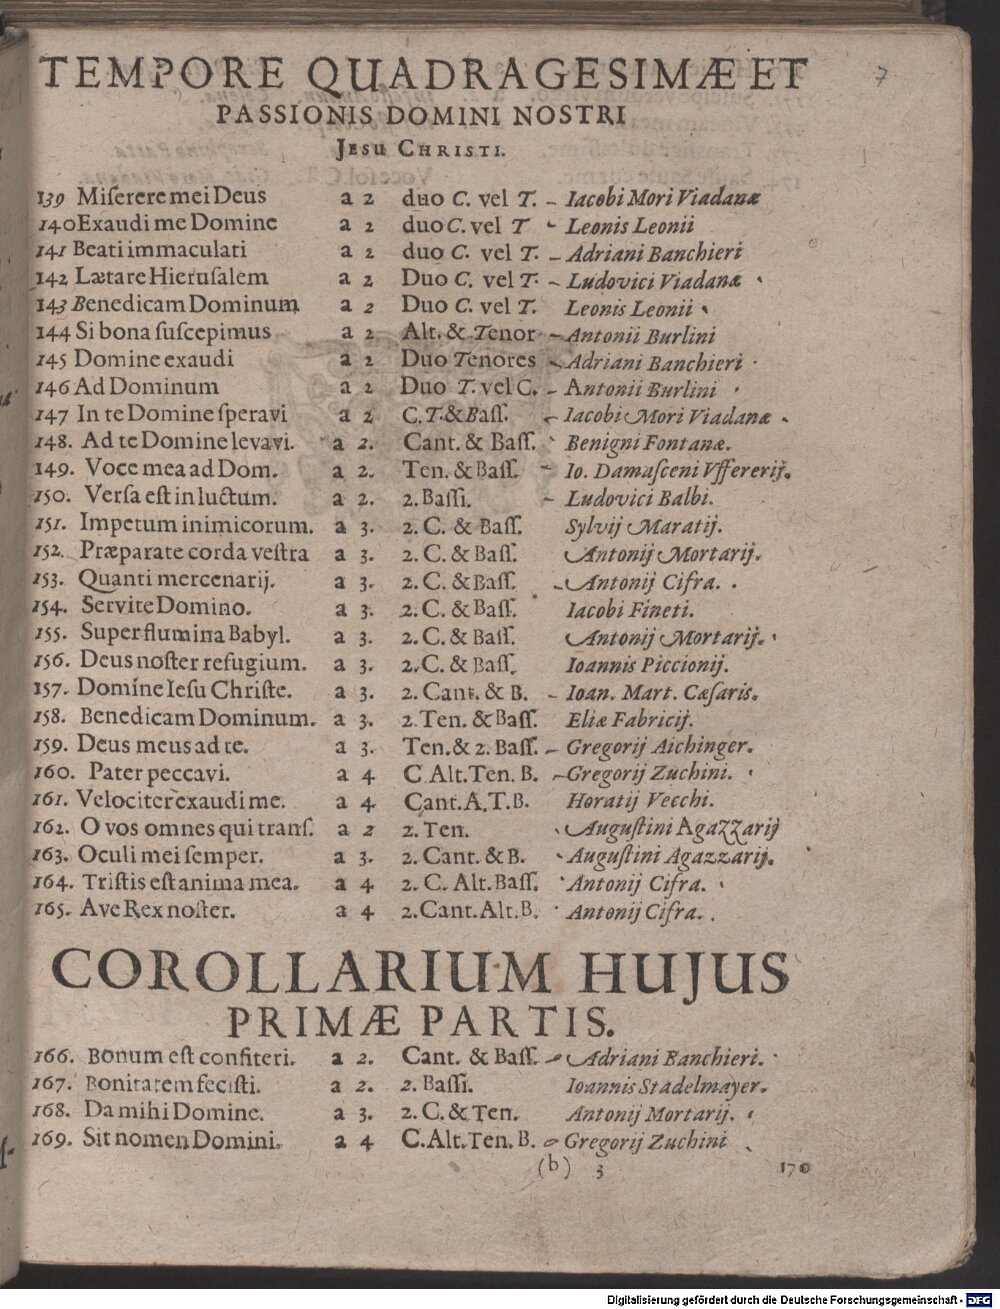 TEMPORE QUADRAGESIMÆ ET 7
PASSIONIS DOMINI NOSTRI
JESU CHRISTI.
139 Miſerere mei Deus a 2 duo C. vel T. – Iacobi Mori Viadanæ
140 Exaudi me Domine a 2 duo C. vel T - Leonis Leonii
141 Beati immaculati a 2 duo C. vel T. – Adriani Banchieri
142 Lætare Hieruſalem a 2 Duo C. vel T. – Ludovici Viadanæ
143 Benedicam Dominum a 2 Duo C. vel T. Leonis Leonii
144 Si bona ſuſcepimus a 2 Alt. & Tenor – Antonii Burlini
145 Domine exaudi a 2 Duo Tenores – Adriani Banchieri
146 Ad Dominum a 2 Duo T. vel C. – Antonii Burlini
147 In te Domine ſperavi a 2 C. T. & Baſſ. – Iacobi Mori Viadanæ
148. Ad te Domine levavi. a 2. Cant. & Baſſ. Benigni Fontanæ.
149. Voce mea ad Dom. a 2. Ten. & Baſſ. – Io. Damaſceni Vffererij.
150. Verſa eſt in luctum. a 2. 2. Baſſi. – Ludovici Balbi.
151. Impetum inimicorum. a 3. 2. C. & Baſſ. Sylvij Maratij.
152. Præparate corda veſtra a 3. 2. C. & Baſſ. Antonij Mortarij.
153. Quanti mercenarij. a 3. 2. C. & Baſſ. Antonij Cifra.
154. Servite Domino. a 3. 2. C. & Baſſ. Iacobi Fineti.
155. Super flumina Babyl. a 3. 2. C. & Baſſ. Antonij Mortarij.
156. Deus noſter refugium. a 3. 2. C. & Baſſ. Ioannis Piccionij.
157. Domine Ieſu Chriſte. a 3. 2. Cant. & B. – Ioan. Mart. Cæſaris.
158. Benedicam Dominum. a 3. 2. Ten. & Baſſ. Eliæ Fabricij.
159. Deus meus ad te. a 3. Ten. & 2. Baſſ. – Gregorij Aichinger.
160. Pater peccavi. a 4 C Alt. Ten. B. – Gregorij Zuchini.
161. Velociter exaudi me. a 4 Cant. A. T. B. Horatij Vecchi.
162. O vos omnes qui tranſ. a 2 2. Ten. Auguſtini Agazzarij
163. Oculi mei ſemper. a 3. 2. Cant. & B. Auguſtini Agazzarij.
164. Triſtis eſt anima mea. a 4 2. C. Alt. Baſſ. Antonij Cifra.
165. Ave Rex noſter. a 4 2. Cant. Alt. B. Antonij Cifra.
COROLLARIUM HUJUS
PRIMÆ PARTIS.
166. Bonum eſt confiteri. a 2. Cant. & Baſſ. – Adriani Banchieri.
167. Bonitatem feciſti. a 2. 2. Baſſi. Ioannis Stadelmayer.
168. Da mihi Domine. a 3. 2. C. & Ten. Antonij Mortarij.
169. Sit nomen Domini. a 4 C. Alt. Ten. B. – Gregorij Zuchini
(b) 3 170
Digitalisierung gefördert durch die Deutsche Forschungsgemeinschaft - DFG